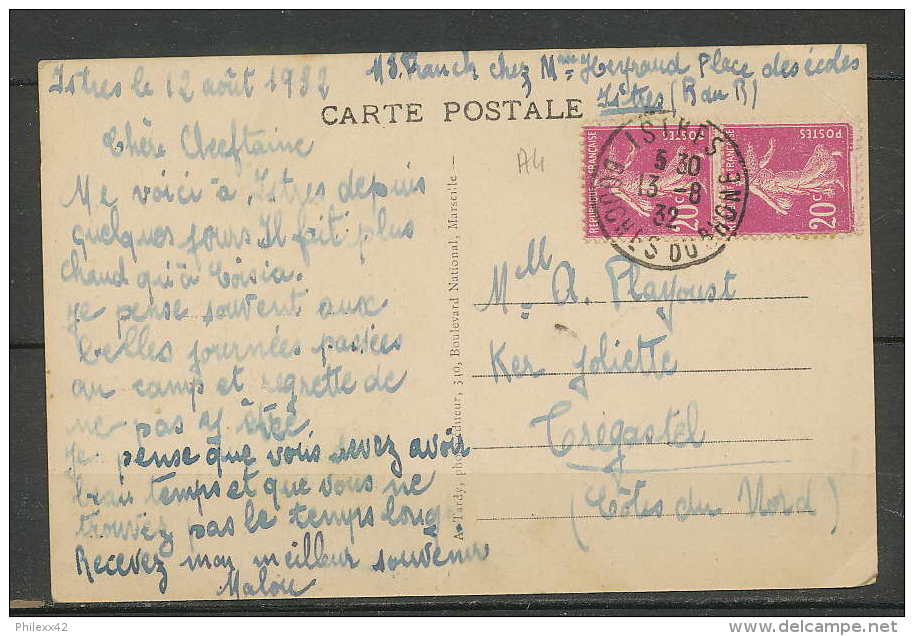 Istres le 12 août 1932
M S. Franch chez Mme Heyraud Place des écoles
Istres (B du R)
CARTE POSTALE
A4
Chère Cheftaine
Me voici à Istres depuis
quelques jours Il fait plus
chaud qu'à
je pense souvent aux
belles journées passées
au camp et regrette de
ne pas y être
je pense que vous devez avoir
beau temps et que vous ne
trouvez pas le temps long
Recevez mon meilleur souvenir
Malou
A. Tardy, photo-éditeur, 340, Boulevard National, Marseille
REPUBLIQUE FRANÇAISE
POSTES
20c
POSTES
20c
ISTRES
5 30
13 -8
32
BOUCHES DU RHONE
Melle A. Playoust
Ker Joliette
Trégastel
(Côtes du Nord)
Philexx42
delcampe.net